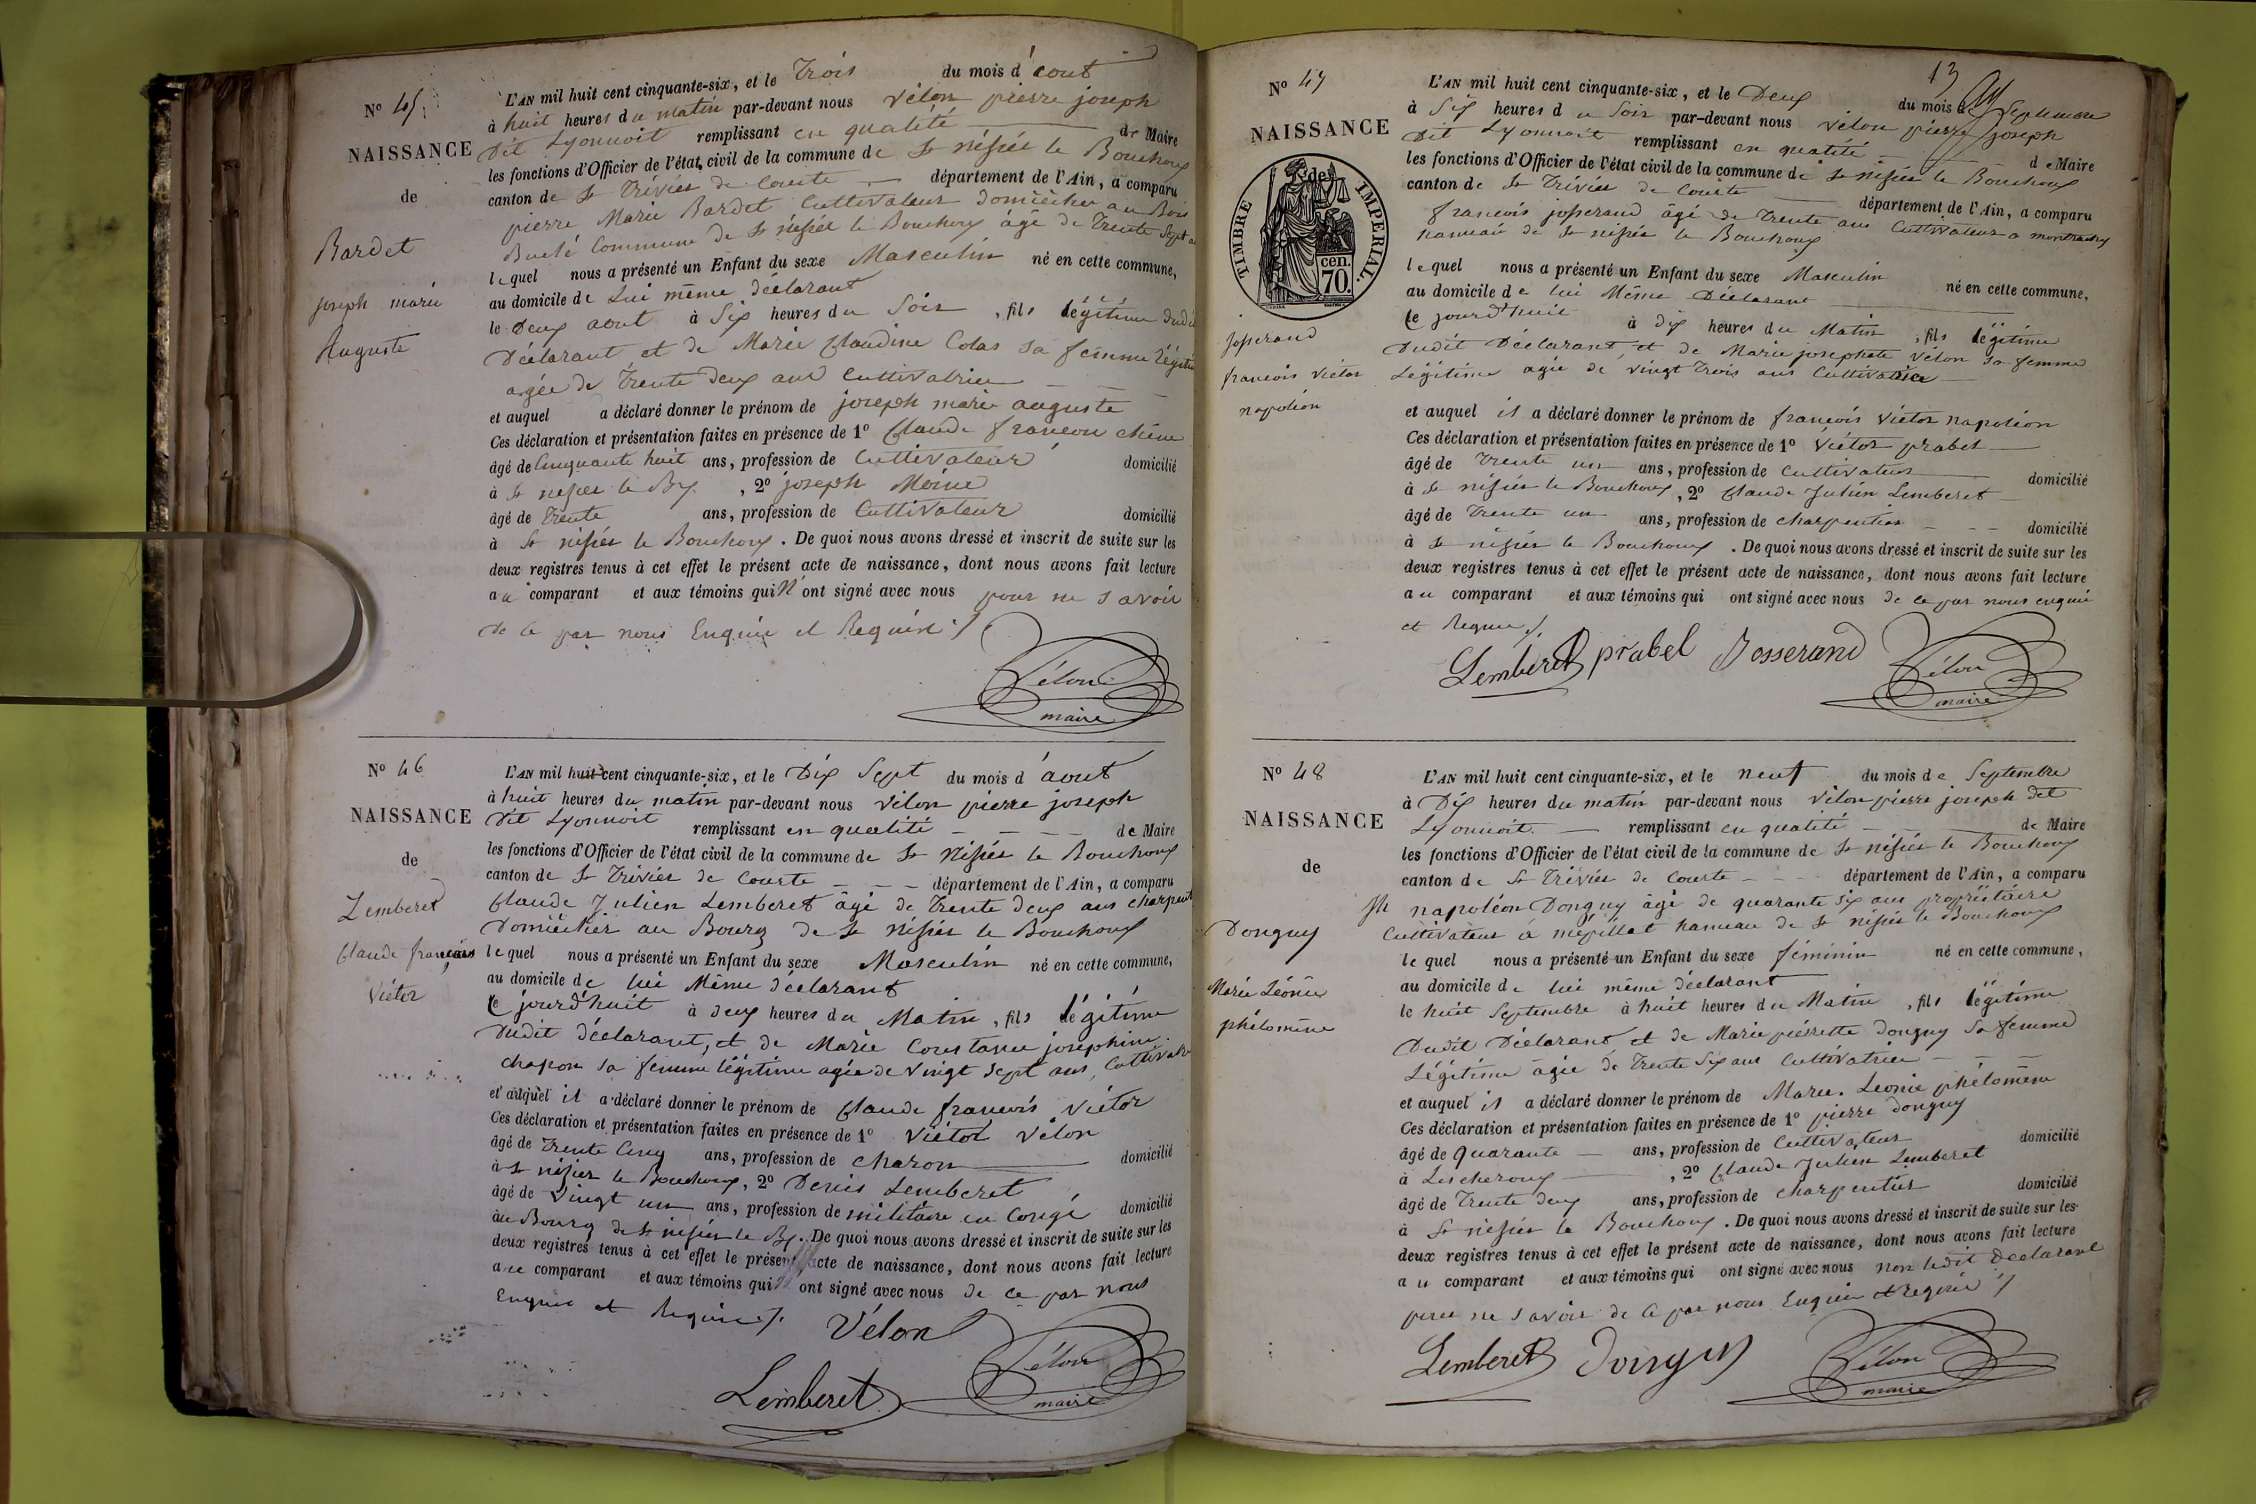 N° 45.
NAISSANCE
de
Bardet
joseph marie
Auguste
L'AN mil huit cent cinquante-six, et le Trois du mois d'aout
à huit heures du matin par-devant nous vélon pierre joseph
Dit Lyonnoit remplissant en qualité de Maire
les fonctions d'Officier de l'état civil de la commune de St nisier le Bouchoux
canton de St Trivier de Courte département de l'Ain, a comparu
pierre Marie Bardet Cultivateur domicilier au Bois
Commune de St nisier le Bouchoux âgé de Trente Sept
lequel nous a présenté un Enfant du sexe Masculin né en cette commune,
au domicile de Lui même déclarant
le Deux aout à Six heures du Soir, fils légitime dudit
Déclarant et de Marie Claudine Colas sa femme légitime
agée de Trente deux ans Cultivatrice
et auquel a déclaré donner le prénom de joseph marie auguste
Ces déclaration et présentation faites en présence de 1° Claude françois chêne
âgé de Cinquante huit ans, profession de Cultivateur domicilié
à St nisier le Bx, 2° joseph
âgé de Trente ans, profession de Cultivateur domicilié
à St nisier le Bouchoux. De quoi nous avons dressé et inscrit de suite sur les
deux registres tenus à cet effet le présent acte de naissance, dont nous avons fait lecture
au comparant et aux témoins qui N'ont signé avec nous pour ne savoir
de ce par nous Enquie et Requis ./.
Vélon
maire
N° 46
NAISSANCE
de
Lemberet
Claude françois
Victor
L'AN mil huit cent cinquante-six, et le Dix Sept du mois d'aout
à huit heures du matin par-devant nous vélon pierre joseph
Dit Lyonnoit remplissant en qualité de Maire
les fonctions d'Officier de l'état civil de la commune de St Nisier le Bouchoux
canton de St Trivier de Courte département de l'Ain, a comparu
Claude Julien Lemberet âgé de Trente deux ans charpent
Domicilier au Bourg de St Nisier le Bouchoux
lequel nous a présenté un Enfant du sexe Masculin né en cette commune,
au domicile de lui Même déclarant
Ce jourd'huit à deux heures du Matin, fils légitime
Dudit déclarant, et de Marie Constance josephine
chapon sa femme légitime agée de vingt sept ans, Cultivatr
et auquel il a déclaré donner le prénom de Claude françois Victor
Ces déclaration et présentation faites en présence de 1° Victor Vélon
âgé de Trente Cinq ans, profession de charon domicilié
à St nisier le Bouchoux, 2° Denis Lemberet
âgé de vingt un ans, profession de militaire en Congé domicilié
au Bourg de St nisier le Bx. De quoi nous avons dressé et inscrit de suite sur les
deux registres tenus à cet effet le présent acte de naissance, dont nous avons fait lecture
au comparant et aux témoins qui ont signé avec nous de ce par nous
Enquie et Requis ./. Vélon
Lemberet
Vélon
maire
13
N° 47
NAISSANCE
de
TIMBRE IMPERIAL.
cen.
70.
josserand
francois victor
napoléon
L'AN mil huit cent cinquante-six, et le Deux du mois de Septembre
à Six heures du Soir par-devant nous vélon pierre joseph
Dit Lyonnoit remplissant en qualité de Maire
les fonctions d'Officier de l'état civil de la commune de St nisier le Bouchoux
canton de St Trivier de Courte département de l'Ain, a comparu
francois josserand âgé de Trente ans Cultivateur a
hameau de St nisier le Bouchoux
lequel nous a présenté un Enfant du sexe Masculin né en cette commune,
au domicile de lui Même Déclarant
Ce jourd'huit à dix heures du Matin, fils légitime
Dudit Déclarant, et de Marie josephete vélon sa femme
Légitime agée de vingt Trois ans Cultivatrice
et auquel il a déclaré donner le prénom de francois victor napoléon
Ces déclaration et présentation faites en présence de 1° Victor prabel
âgé de Trente un ans, profession de Cultivateur domicilié
à St nisier le Bouchoux, 2° Claude Julien Lemberet
âgé de Trente un ans, profession de charpentier domicilié
à St nisier le Bouchoux. De quoi nous avons dressé et inscrit de suite sur les
deux registres tenus à cet effet le présent acte de naissance, dont nous avons fait lecture
au comparant et aux témoins qui ont signé avec nous de ce par nous enquie
et Requis ./.
Lemberet prabel Josserand Vélon
maire
N° 48
NAISSANCE
de
Donguy
Marie Léonie
phélomène
L'AN mil huit cent cinquante-six, et le neuf du mois de Septembre
à Dix heures du matin par-devant nous vélon pierre joseph dit
Lyonnoit. remplissant en qualité de Maire
les fonctions d'Officier de l'état civil de la commune de St nisier le Bouchoux
canton de St Trivier de Courte département de l'Ain, a comparu
Jh napoléon Donguy âgé de quarante six ans propriétaire
Cultivateur à mépillat hameau de St nisier le Bouchoux
lequel nous a présenté un Enfant du sexe féminin né en cette commune,
au domicile de lui même déclarant
le huit Septembre à huit heures du Matin, fils légitime
Dudit Déclarant, et de Marie pierrette donguy Sa femme
Légitime âgée de Trente Six ans Cultivatrice
et auquel il a déclaré donner le prénom de Marie. Leonie phélomène
Ces déclaration et présentation faites en présence de 1° pierre donguy
âgé de quarante ans, profession de Cultivateur domicilié
à Lescheroux, 2° Claude Julien Lemberet
âgé de Trente deux ans, profession de charpentier domicilié
à St nisier le Bouchoux. De quoi nous avons dressé et inscrit de suite sur les
deux registres tenus à cet effet le présent acte de naissance, dont nous avons fait lecture
au comparant et aux témoins qui ont signé avec nous non ledit Déclarant
pour ne savoir de ce par nous Enquie et Requis ./.
Lemberet Donguy Vélon
maire